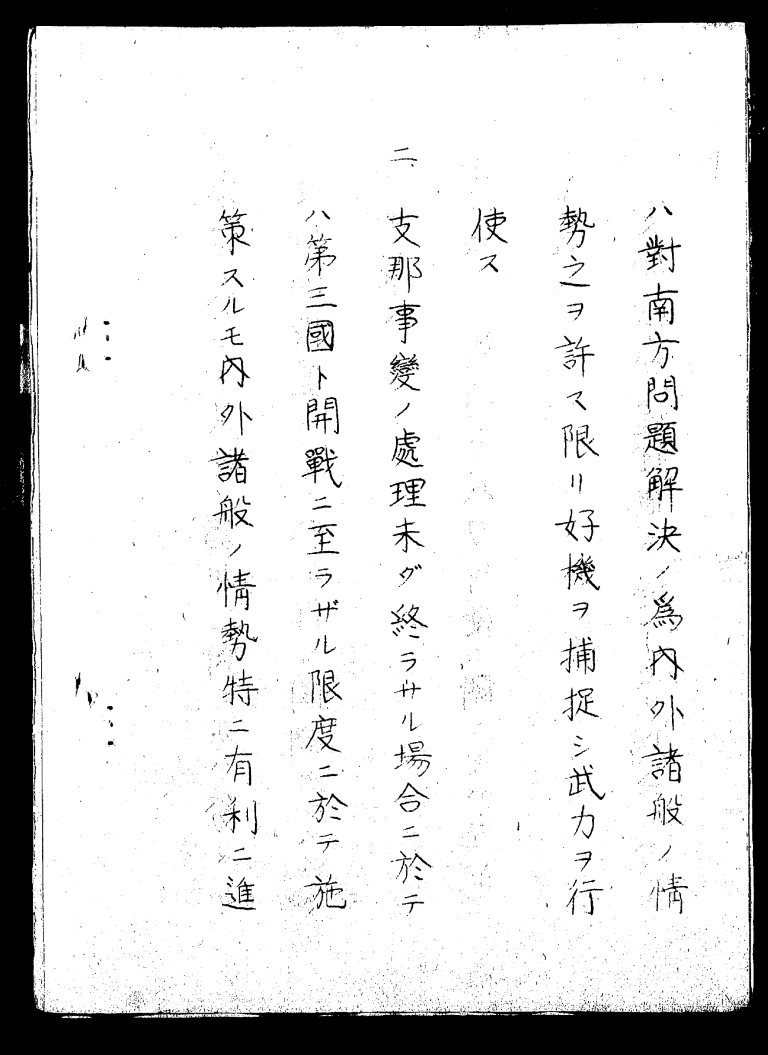 ハ對南方問題解決ノ爲內外諸般ノ情
勢之ヲ許マ限リ好機ヲ捕捉シ武力ヲ行
使ス
二、支那事變ノ處理未ダ終ラサル場合ニ於テ
ハ第三國ト開戰ニ至ラザル限度ニ於テ施
策スルモ內外諸般ノ情勢特ニ有利ニ進